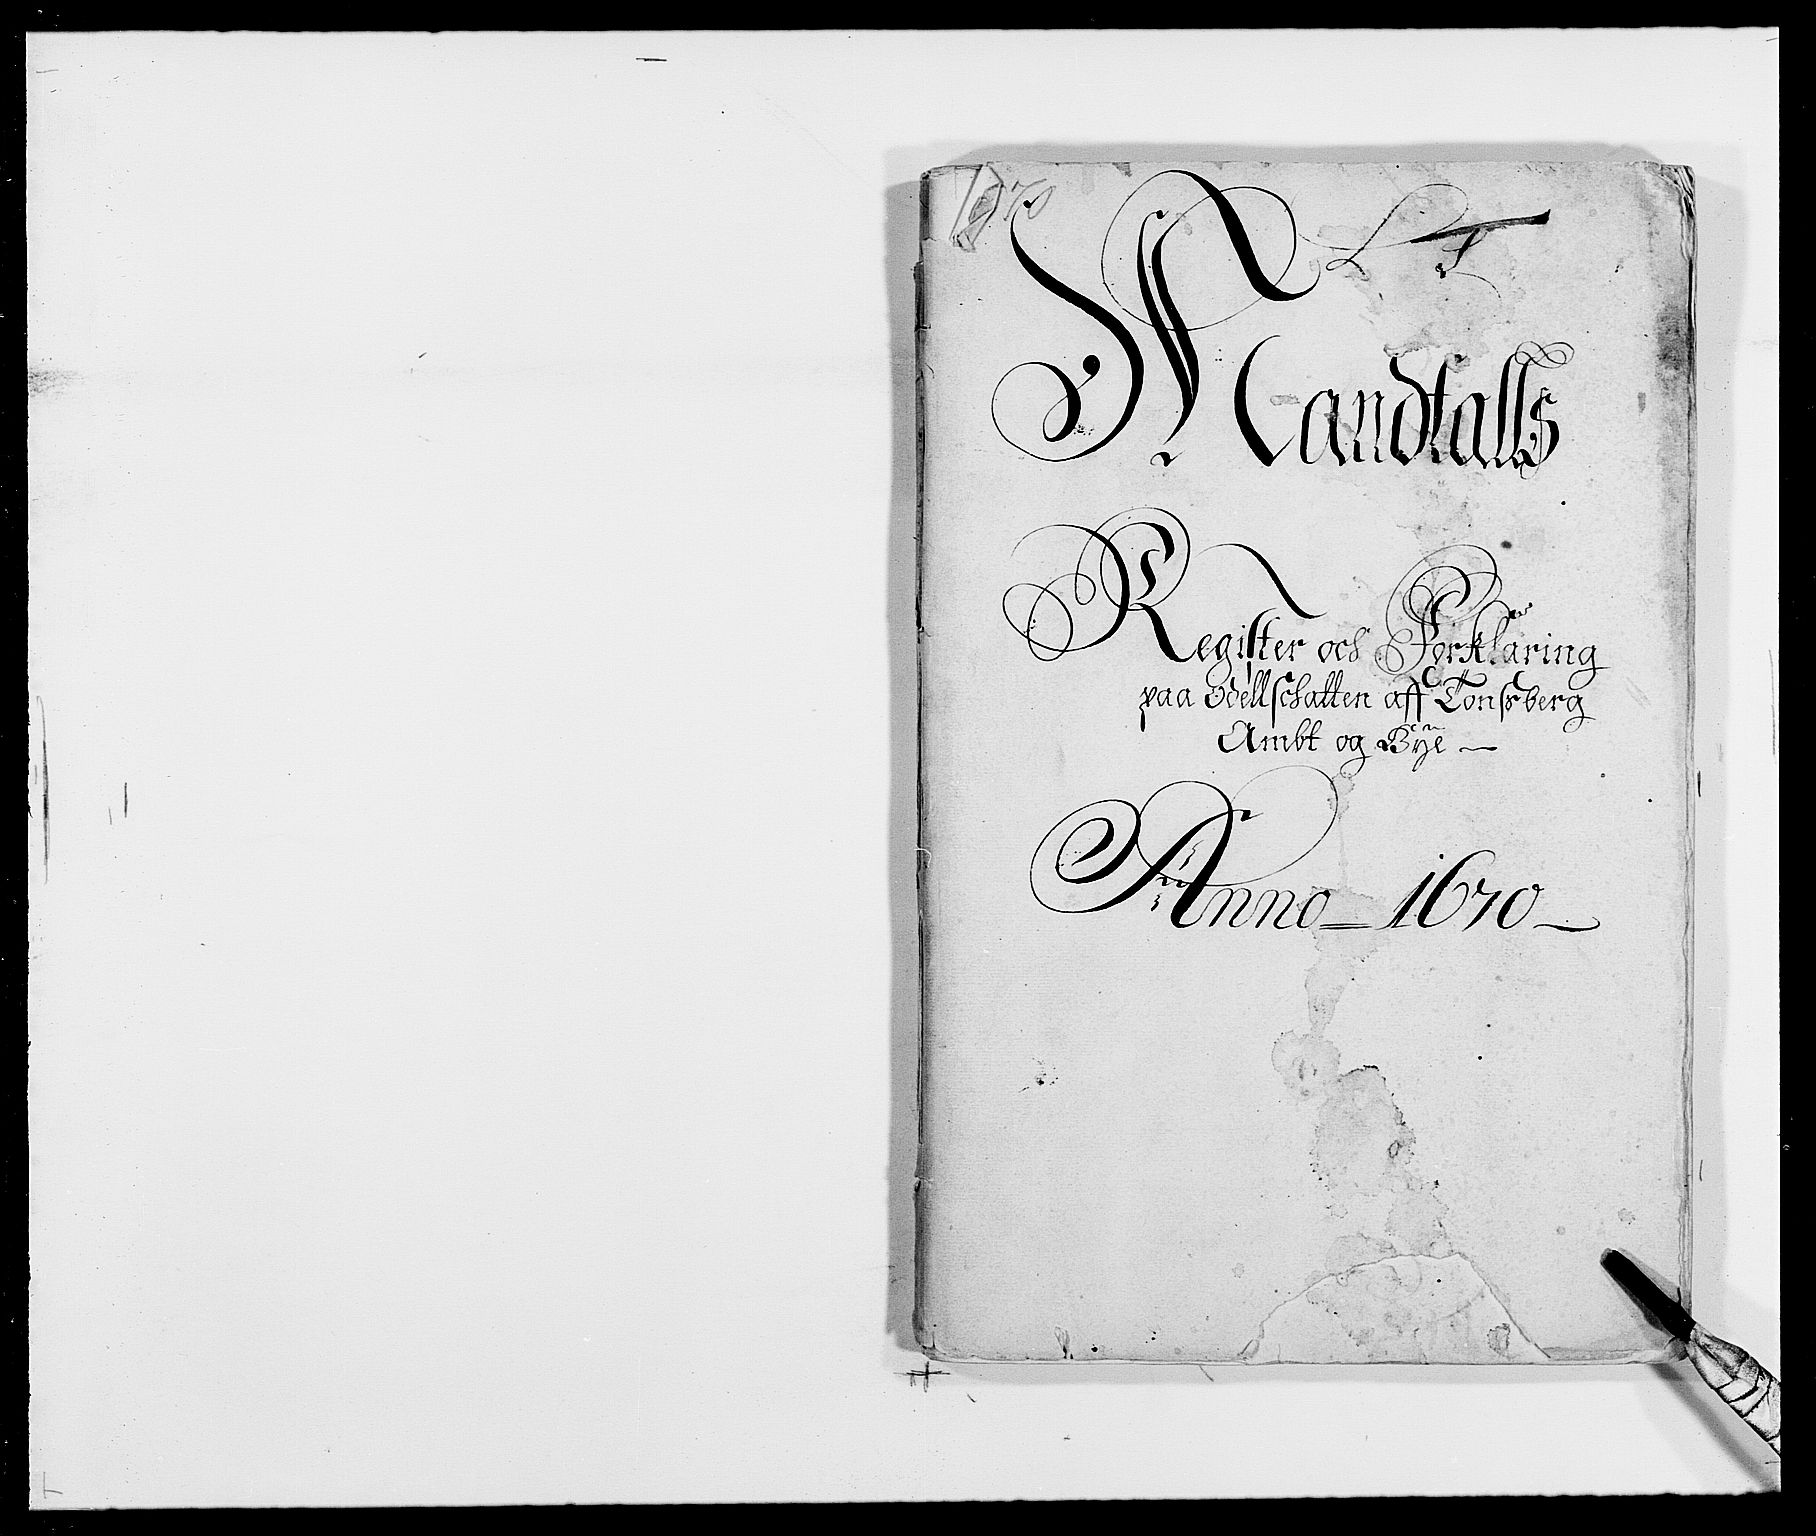 1670
L F
Mandtalls
Register och Forklaring
paa Odellschatten aff Tonsberg
Ambt og Bye —
Anno 1670